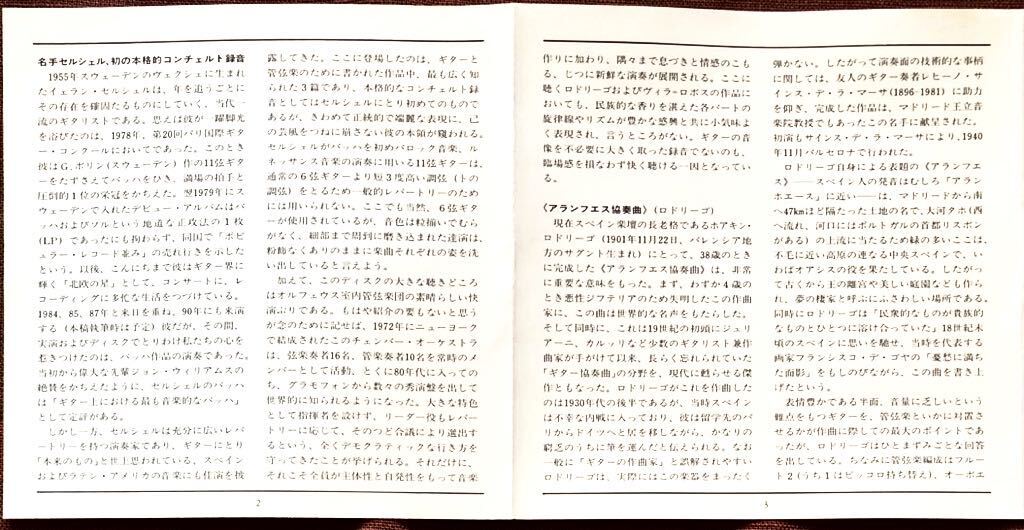 名手セルシェル、初の本格的コンチェルト録音
1955年スウェーデンのヴェクシェに生まれ
たイェラン・セルシェルは、年を追うごとに
その存在を確固たるものにしていく、当代一
流のギタリストである。思えば彼が一躍脚光
を浴びたのは、1978年、第20回パリ国際ギタ
ー・コンクールにおいてであった。このとき
彼はG.ボリン(スウェーデン)作の11弦ギタ
ーをたずさえてバッハをひき、満場の拍手と
圧倒的1位の栄冠をかちえた。翌1979年にス
ウェーデンで入れたデビュー・アルバムはバ
ッハおよびソルという地道な正攻法の1枚
(LP)であったにも拘わらず、同国で「ポピ
ュラー・レコード並み」の売れ行きを示した
という。以後、こんにちまで彼はギター界に
輝く「北欧の星」として、コンサートに、レ
コーディングに多忙な生活をつづけている。
1984、85、87年と来日を重ね、90年にも来演
する(本稿執筆時は予定)彼だが、その間、
実演およびディスクでとりわけ私たちの心を
惹きつけたのは、バッハ作品の演奏であった。
当初から偉大な先輩ジョン・ウィリアムスの
絶賛をかちえたように、セルシェルのバッハ
は「ギター上における最も音楽的なバッハ」
として定評がある。
しかし一方、セルシェルは充分に広いレパ
ートリーを持つ演奏家であり、ギターにとり
「本来のもの」と世上思われている、スペイン
およびラテン・アメリカの音楽にも佳演を披
露してきた。ここに登場したのは、ギターと
管弦楽のために書かれた作品中、最も広く知
られた3篇であり、本格的なコンチェルト録
音としてはセルシェルにとり初めてのもので
あるが、きわめて正統的で端麗な表現に、己
の芸風をつねに崩さない彼の本領が窺われる。
セルシェルがバッハを初めバロック音楽、ル
ネッサンス音楽の演奏に用いる11弦ギターは、
通常の6弦ギターより短3度高い調弦(トの
調弦)をとるため一般的レパートリーのため
には用いられない。ここでも当然、6弦ギタ
ーが使用されているが、音色は粒揃いでむら
がなく、細部まで周到に磨き込まれた達演は、
粉飾なくありのままに楽曲それぞれの姿を洗
い出していると言えよう。
加えて、このディスクの大きな聴きどころ
はオルフェウス室内管弦楽団の素晴らしい快
演ぶりである。もはや紹介の要もないと思う
が念のために記せば、1972年にニューヨーク
で結成されたこのチェンバー・オーケストラ
は、弦楽奏者16名、管楽奏者10名を常時のメ
ンバーとして活動、とくに80年代に入っての
ち、グラモフォンから数々の秀演盤を出して
世界的に知られるようになった。大きな特色
として指揮者を設けず、リーダー役もレパー
トリーに応じて、そのつど合議により選出す
るという、全くデモクラティックな行き方を
守ってきたことが挙げられる。それだけに、
それこそ全員が主体性と自発性をもって音楽
2
作りに加わり、隅々まで息づきと情感のこも
る、じつに新鮮な演奏が展開される。ここに
聴くロドリーゴおよびヴィラ=ロボスの作品に
おいても、民族的な香りを湛えた各パートの
旋律線やリズムが豊かな感興と共に小気味よ
く表現され、言うところがない。ギターの音
像を不必要に大きく取った録音でないのも、
臨場感を損なわず快く聴ける一因となってい
る。
《アランフエス協奏曲》(ロドリーゴ)
現在スペイン楽壇の長老格であるホアキン・
ロドリーゴ(1901年11月22日、バレンシア地
方のサグント生まれ)にとって、38歳のとき
に完成した《アランフエス協奏曲》は、非常
に重要な意味をもった。まず、わずか4歳の
とき悪性ジフテリアのため失明したこの作曲
家に、この曲は世界的な名声をもたらした。
そして同時に、これは19世紀の初頭にジュリ
アーニ、カルッリなど少数のギタリスト兼作
曲家が手がけて以来、長らく忘れられていた
「ギター協奏曲」の分野を、現代に甦らせる傑
作ともなった。ロドリーゴがこれを作曲した
のは1930年代の後半であるが、当時スペイン
は不幸な内戦に入っており、彼は留学先のパ
リからドイツへと居を移しながら、かなりの
窮乏のうちに筆を運んだと伝えられる。なお
一般に「ギターの作曲家」と誤解されやすい
ロドリーゴは、実際にはこの楽器をまったく
弾かない。したがって演奏面の技術的な事柄
に関しては、友人のギター奏者レヒーノ・サ
インス・デ・ラ・マーサ(1896-1981)に助力
を仰ぎ、完成した作品は、マドリード王立音
楽院教授でもあったこの名手に献呈された。
初演もサインス・デ・ラ・マーサにより、1940
年11月バルセロナで行われた。
ロドリーゴ自身による表題の《アランフエ
ス》――スペイン人の発音はむしろ「アラン
ホエース」に近い――は、マドリードから南
へ47kmほど隔たった土地の名で、大河タホ(西
へ流れ、河口にはポルトガルの首都リスボン
がある)の上流に当たるため緑の多いここは、
不毛に近い高原の連なる中央スペインで、い
わばオアシスの役を果たしている。したがっ
て古くから王の離宮や美しい庭園なども作ら
れ、夢の棲家と呼ぶにふさわしい場所である。
同時にロドリーゴは「民衆的なものが貴族的
なものとひとつに溶け合っていた」18世紀末
頃のスペインに思いを馳せ、当時を代表する
画家フランシスコ・デ・ゴヤの「憂愁に満ち
た面影」をもしのびながら、この曲を書き上
げたという。
表情豊かである半面、音量に乏しいという
難点をもつギターを、管弦楽といかに対置さ
せるかが作曲に際しての最大のポイントであ
ったが、ロドリーゴはひとまずみごとな回答
を出している。ちなみに管弦楽編成はフルー
ト2(うち1はピッコロ持ち替え)、オーボエ
3